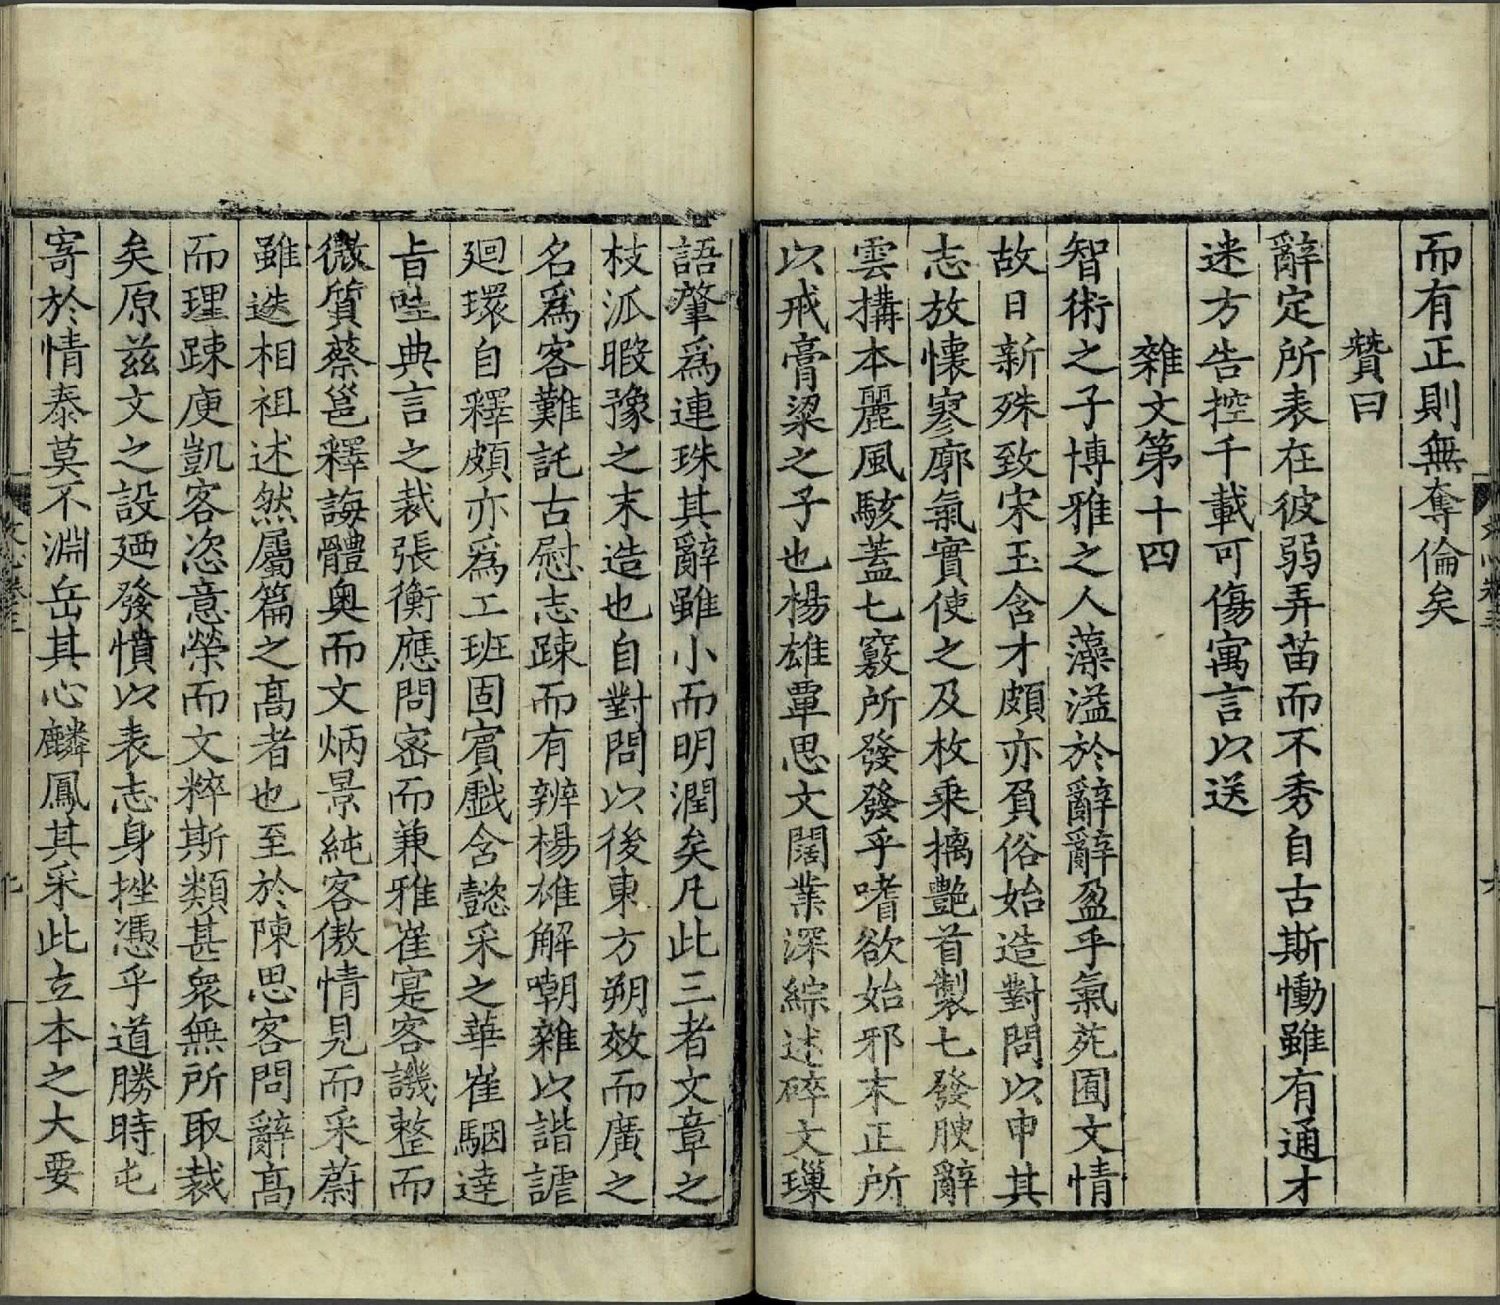 而有正則無奪倫矣
贊曰
辭定所表在彼弱弄苗而不秀自古斯慟雖有通才
迷方告控千載可傷寓言以送
雜文第十四
智術之子博雅之人藻溢於辭辭盈乎氣苑囿文情
故日新殊致宋玉含才頗亦負俗始造對問以申其
志放懷寥廓氣實使之及枚乘摛艷首製七發腴辭
雲搆本麗風駭蓋七竅所發發乎嗜欲始邪末正所
以戒膏粱之子也楊雄覃思文闊業深綜述碎文璅
語肇為連珠其辭雖小而明潤矣凡此三者文章之
枝泒暇豫之末造也自對問以後東方朔效而廣之
名爲客難託古慰志踈而有辨楊雄解嘲雜以諧謔
廻環自釋頗亦爲工班固賓戲含懿采之華崔駰達
旨吐典言之裁張衡應問宻而兼雅崔寔客譏整而
微質蔡邕釋誨體奧而文炳景純客傲情見而采蔚
雖迭相祖述然屬篇之髙者也至於陳思客問辭髙
而理踈庾凱客咨意榮而文粹斯類甚衆無所取裁
矣原兹文之設廼發憤以表志身挫憑乎道勝時屯
寄於情泰莫不淵岳其心麟鳳其采此立本之大要